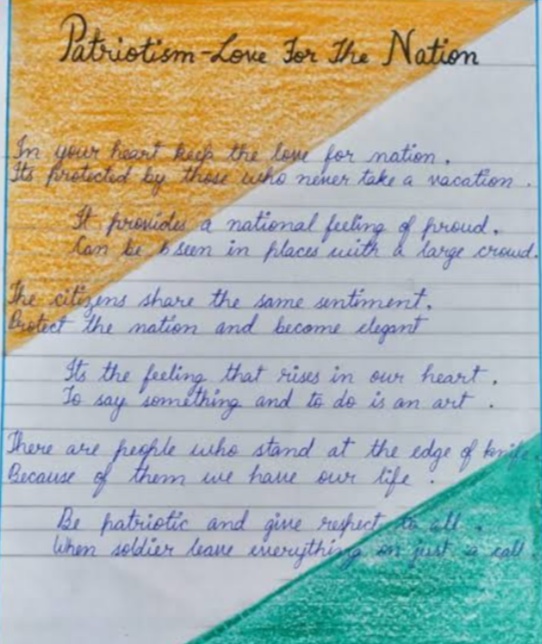 Patriotism - Love For The Nation
In your heart keep the love for nation.
Its protected by those who never take a vacation.
It provides a national feeling of proud.
Can be seen in places with a large crowd.
The citizens share the same sentiment,
Protect the nation and become elegant
Its the feeling that rises in our heart.
To say something and to do is an art.
There are people who stand at the edge of knife
Because of them we have our life.
Be patriotic and give respect to all.
When soldier leave everything on just a call.